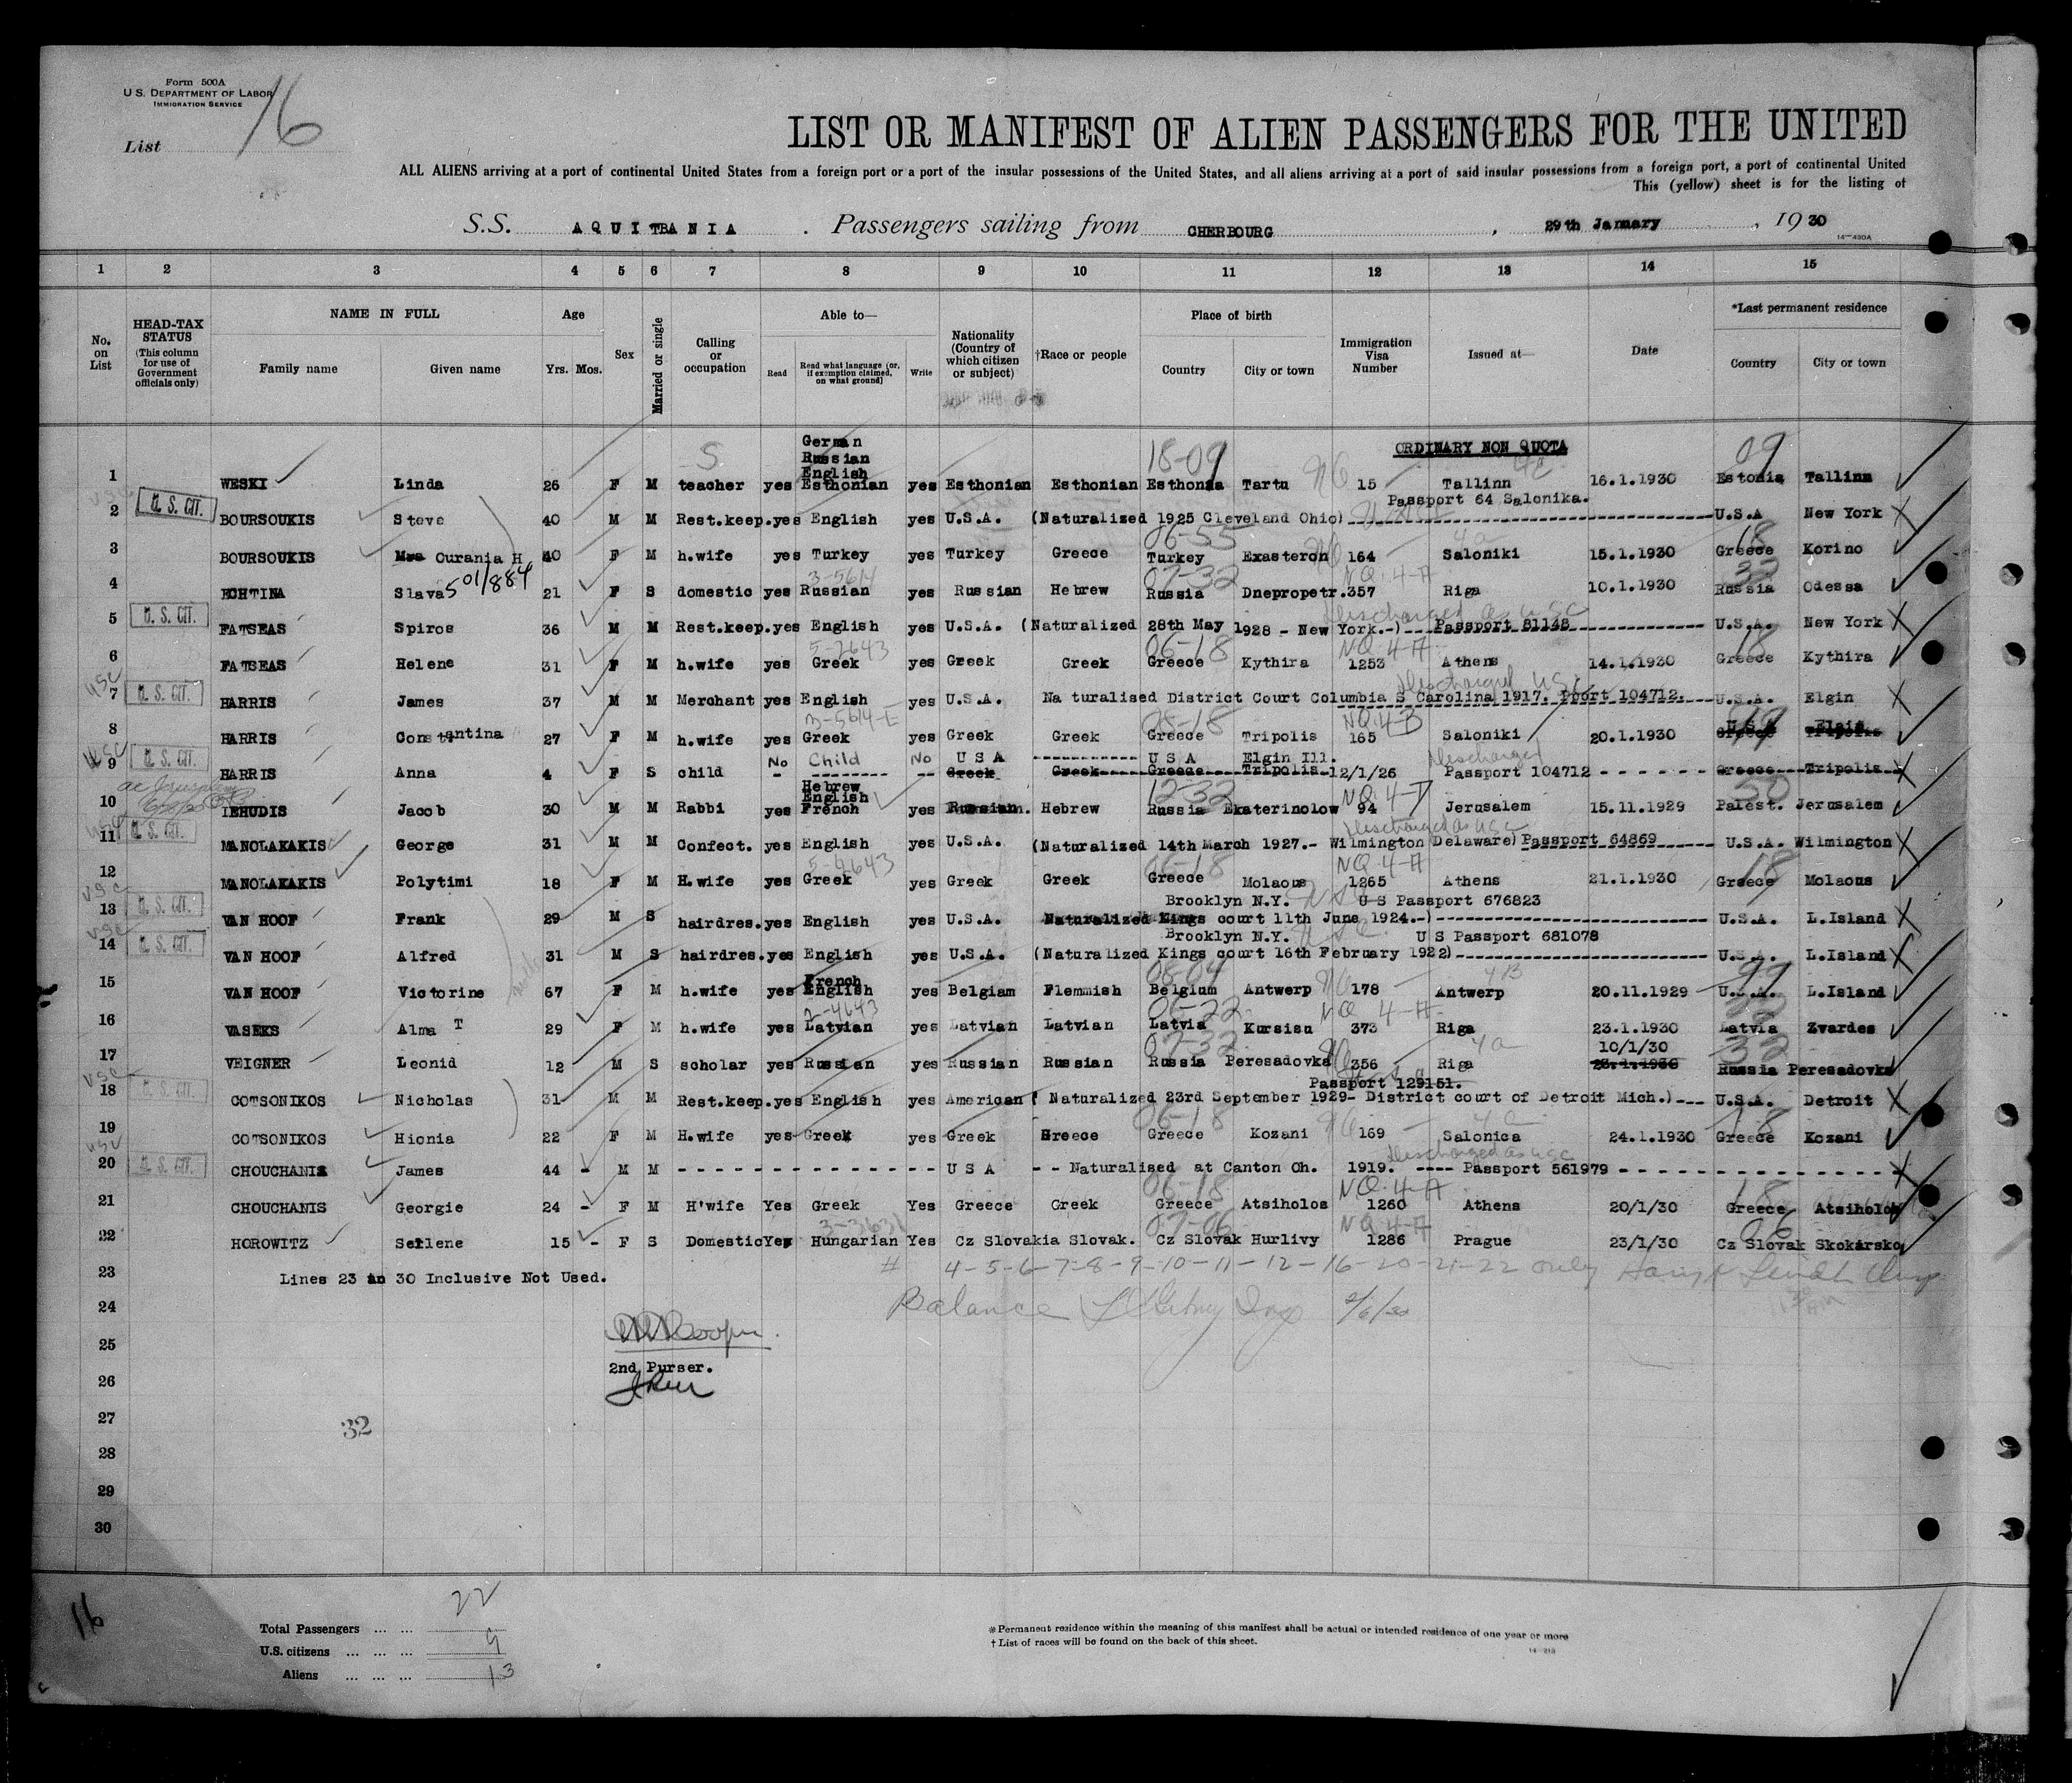 Form 500A
U.S. DEPARTMENT OF LABOR
IMMIGRATION SERVICE
List 16
LIST OR MANIFEST OF ALIEN PASSENGERS FOR THE UNITED
ALL ALIENS arriving at a port of continental United States from a foreign port or a port of the insular possessions of the United States, and all aliens arriving at a port of said insular possessions from a foreign port, a port of continental United
This (yellow) sheet is for the listing of
S.S. AQUITANIA . Passengers sailing from CHERBOURG , 29th January , 1930
14—430A
1 2 3 4 5 6 7 8 9 10 11 12 13 14 15
No. on List
HEAD-TAX STATUS (This column for use of Government officials only)
NAME IN FULL
Family name Given name
Age
Yrs. Mos.
Sex
Married or single
Calling or occupation
Able to—
Read
Read what language [or, if exemption claimed, on what ground]
Write
Nationality (Country of which citizen or subject)
†Race or people
Place of birth
Country City or town
Immigration Visa Number
Issued at—
Date
*Last permanent residence
Country City or town
S
German
Russian
English
18-09
ORDINARY NON QUOTA
09
1 WESKI Linda 26 F M teacher yes Esthonian yes Esthonian Esthonian Esthonia Tartu 15 Tallinn 16.1.1930 Estonia Tallinn
Passport 64 Salonika.
U.S. CIT.
2 BOURSOUKIS Steve 40 M M Rest.keep. yes English yes U.S.A. (Naturalized 1925 Cleveland Ohio) U.S.A New York
06-55
18
3 BOURSOUKIS Mrs Curania H 40 F M h.wife yes Turkey yes Turkey Greece Turkey Exasteron 164 Saloniki 15.1.1930 Greece Korino
501/884
3-5614
07-32
NQ.4-A
32
4 ECHTINA Slava 21 F S domestic yes Russian yes Russian Hebrew Russia Dnepropetr. 357 Riga 10.1.1930 Russia Odessa
Discharged as USC
U.S. CIT.
5 FATSEAS Spiros 36 M M Rest.keep. yes English yes U.S.A. (Naturalized 28th May 1928 - New York.-) Passport 81148 U.S.A. New York
5-2643
06-18
NQ.4-A
18
6 FATSEAS Helene 31 F M h.wife yes Greek yes Greek Greek Greece Kythira 1253 Athens 14.1.1930 Greece Kythira
USC
Discharged USC
U.S. CIT.
7 HARRIS James 37 M M Merchant yes English yes U.S.A. Na turalised District Court Columbia S Carolina 1917. Pport 104712. U.S.A. Elgin
3-5614-E
08-18
NQ.4-B
99
U S A Elgin
8 HARRIS Constantina 27 F M h.wife yes Greek yes Greek Greek Greece Tripolis 165 Saloniki 20.1.1930 Greece Tripolis
USC
No Child No U S A U S A Elgin Ill.
Discharged
U.S. CIT.
9 HARRIS Anna 4 F S child - -- Greek Greek Greece Tripolis 12/1/26 Passport 104712 Greece Tripolis
Hebrew
English
12-32
NQ.4-
10 IEHUDIS Jacob 30 M M Rabbi yes French yes Russian. Hebrew Russia Ekaterinolow 94 Jerusalem 15.11.1929 Palest. Jerusalem
Discharged as USC
U.S. CIT.
11 MANOLAKAKIS George 31 M M Confect. yes English yes U.S.A. (Naturalized 14th March 1927.- Wilmington Delaware) Passport 64869 U.S.A. Wilmington
06-18
NQ.4-A
18
12 MANOLAKAKIS Polytimi 18 F M H.wife yes Greek yes Greek Greek Greece Molaous 1265 Athens 21.1.1930 Greece Molaous
USC
Brooklyn N.Y. U S Passport 676823
U.S. CIT.
13 VAN HOOF Frank 29 M S hairdres. yes English yes U.S.A. Naturalized Kings court 11th June 1924.-) U.S.A. L.Island
USC
Brooklyn N.Y. U S Passport 681078
U.S. CIT.
14 VAN HOOF Alfred 31 M S hairdres. yes English yes U.S.A. (Naturalized Kings court 16th February 1922) U.S.A. L.Island
French
08-04
4B
99
15 VAN HOOF Victorine 67 F M h.wife yes English yes Belgiam Flemmish Belgium Antwerp 178 Antwerp 20.11.1929 U.S.A. L.Island
2-4643
06-22
NQ 4-A
22
16 VASEKS Alma T 29 F M h.wife yes Latvian yes Latvian Latvian Latvia Kursisu 373 Riga 23.1.1930 Latvia Zvardes
07-32
4a
10/1/30
32
17 VEIGNER Leonid 12 M S scholar yes Russian yes Russian Russian Russia Peresadovka 356 Riga 23.1.1930 Russia Peresadovka
USC
Passport 129151.
U.S. CIT.
18 COTSONIKOS Nicholas 31 M M Rest.keep. yes English yes American ( Naturalized 23rd September 1929- District court of Detroit Mich.) U.S.A. Detroit
06-18
4a
18
19 COTSONIKOS Hionia 22 F M H.wife yes Greek yes Greek Greece Greece Kozani 169 Salonica 24.1.1930 Greece Kozani
USC
Discharged as USC
U.S. CIT.
20 CHOUCHANIS James 44 - M M U S A - - Naturalised at Canton Oh. 1919. ---- Passport 561979
06-18
NQ.4-A
18
21 CHOUCHANIS Georgie 24 - F M H'wife Yes Greek Yes Greece Greek Greece Atsiholos 1260 Athens 20/1/30 Greece Atsiholos
3-3631
07-06
NQ.4-A
06
22 HOROWITZ Serlene 15 - F S Domestic Yes Hungarian Yes Cz Slovakia Slovak. Cz Slovak Hurlivy 1286 Prague 23/1/30 Cz Slovak Skokarsko
23 Lines 23 to 30 Inclusive Not Used.
# 4-5-6-7-8-9-10-11-12-16-20-21-22 only
24 Balance 2/6/30
25
2nd Purser.
26
27
32
28
29
30
16
Total Passengers ... ... 22
U.S. citizens ... ... ... 9
Aliens ... ... ... 13
*Permanent residence within the meaning of this manifest shall be actual or intended residence of one year or more
† List of races will be found on the back of this sheet.
14—213